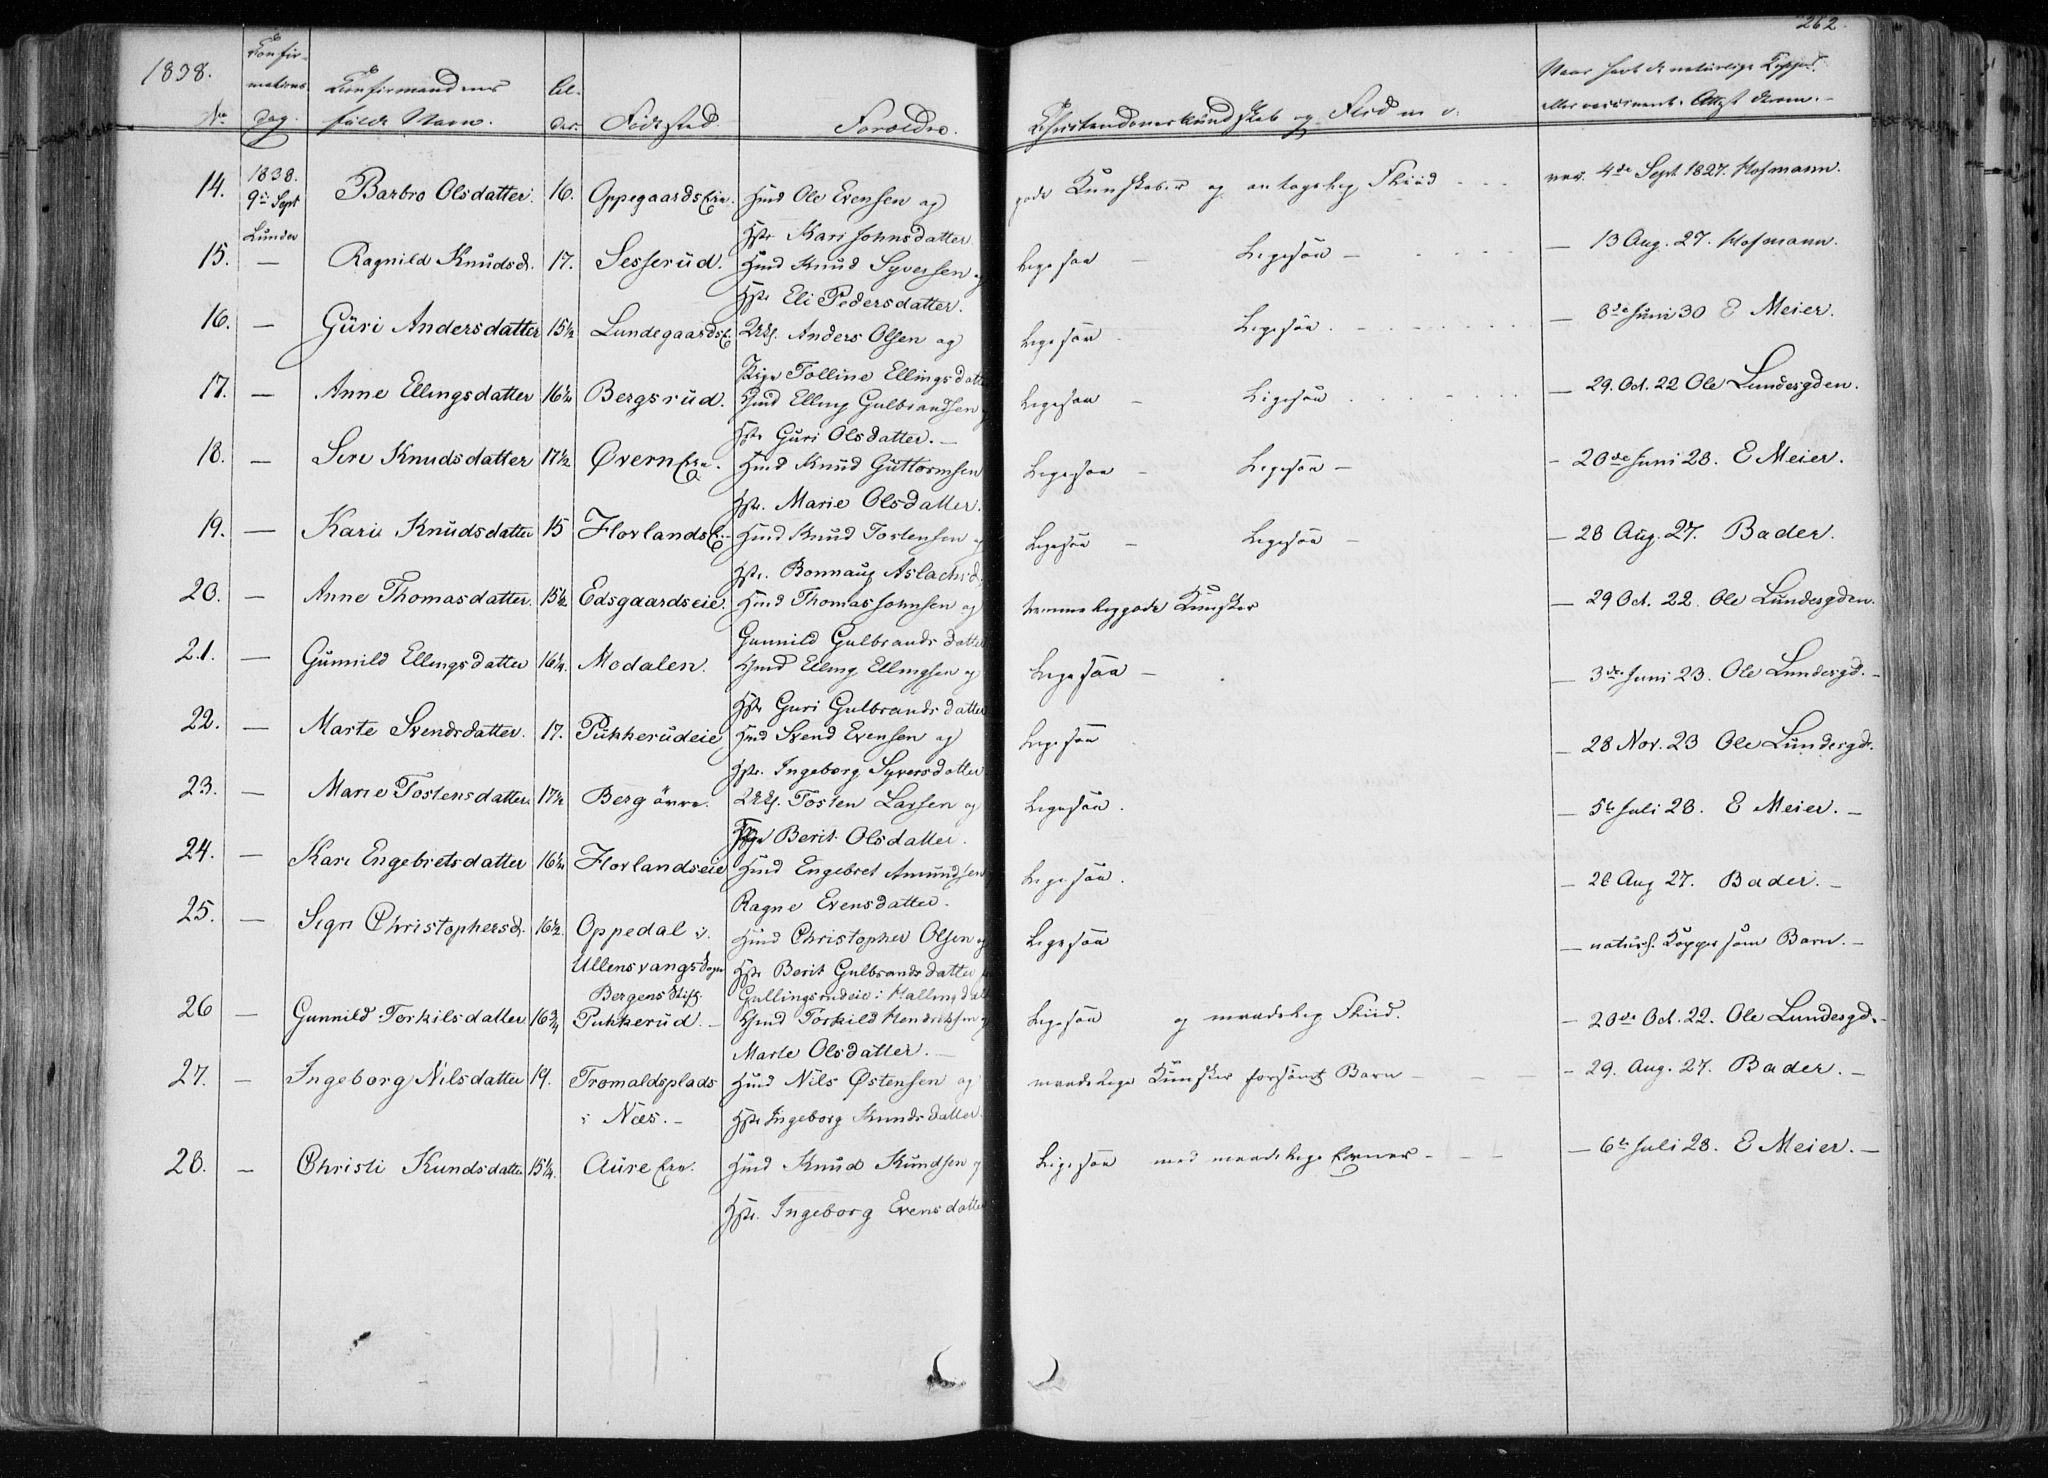 1838.
262.
No
Confirmations Dag.
Confirmandens fulde Navn.
Alder.
Födested.
Forældre.
Christendomskundskab og Fliid m. v.
Naar havt de naturlige Kopper eller vaccineret. Attest derom.
14. 1838. 9de Sept Lunder Barbro Olsdatter. 16. Oppegaards Eie. Hmd Ole Evensen og gode Kunskaber og antagelig Fliid vac. 4de Sept 1827. Hofmann.
Hstr Kari Johnsdatter
15. — Ragnild Knudsd. 17. Sesserud. Hmd Knud Syversen og Ligesaa — Ligesaa — — 13 Aug. 27. Hofmann.
Hstr Eli Pedersdatter.
16. — Guri Andersdatter 15½ Lundegaards E. Anders Olsen og Ligesaa Ligesaa — 8de Juni 30 E Meier.
Pige Tolline Ellingsdatter
17. — Anne Ellingsdatter 16½ Bergsrud. Hmd Elling Gulbrandsen og Ligesaa — Ligesaa — 29. Oct. 22 Ole Lundesgden.
Hstr Guri Olsdatter. —
18. — Siri Knudsdatter 17½ Øvern Eie. Hmd Knud Guttormsen Ligesaa — Ligesaa — — 20de Juni 28. E Meier.
Hstr. Marie Olsdatter.
19. — Kari Knudsdatter 15 Flovlands E. Hmd Knud Tostensen og Ligesaa — Ligesaa — — 28 Aug. 27. Bader.
Hstr. Bonnaug Aslachsd.
20. — Anne Thomasdatter. 15½ Edsgaardseie. Hmd Thomas Johnsen og temmelig gode Kunsker — 29 Oct. 22. Ole Lundesgden.
Gunnild Gulbrandsdatter
21. — Gunnild Ellingsdatter 16¼ Modalen. Hmd Elling Ellingsen og Ligesaa — — 3de Juni 23. Ole Lundesgd. —
Hstr Guri Gulbrandsdatter
22. — Marte Svendsdatter. 17. Pukkerudeie Hmd Svend Evensen og Ligesaa — 28 Nov. 23 Ole Lundesgd.
Hstr. Ingeborg Syversdatter
23. — Marie Tostensdatter 17½ Berg övre. Tosten Larsen og Ligesaa. — 5te Juli 28. E Meier. —
Berit Olsdatter.
24. — Kari Engebretsdatter 16½ Flovlandseie Hmd Engebret Amundsen Ligesaa. — 26 Aug 27. Bader. —
Ragne Evensdatter.
25. — Sigri Christophersd. 16½. Oppedal i Hmd Christopher Olsen og Ligesaa — naturl. Kopper som Barn. —
Ullensvangs Sogn Hstr Berit Gulbrandsdatter
Bergens Stift. Gullingsrudeie i Hallingdal
26 — Gunnild Torkilsdatter 16¾ Pukkerud. — Hmd Torkild Hendriksen og Ligesaa og maadelig Fliid. — 20de Oct. 22. Ole Lundesgd. —
Marte Olsdatter. —
27. — Ingeborg Nilsdatter 19. Tromaldsplads Hmd Nils Østensen og maadelige Kunsker forsömt Barn — — — — 29. Aug. 27. Bader. —
i Næs. — Hstr Ingeborg Knudsdatter.
28. — Christi Knudsdatter 15¼. Aure Eie. Hmd Knud Knudsen og Ligesaa med maadelige Evner — — — — 6te Juli 28. E Meier. —
Hstr. Ingeborg Evensdatter